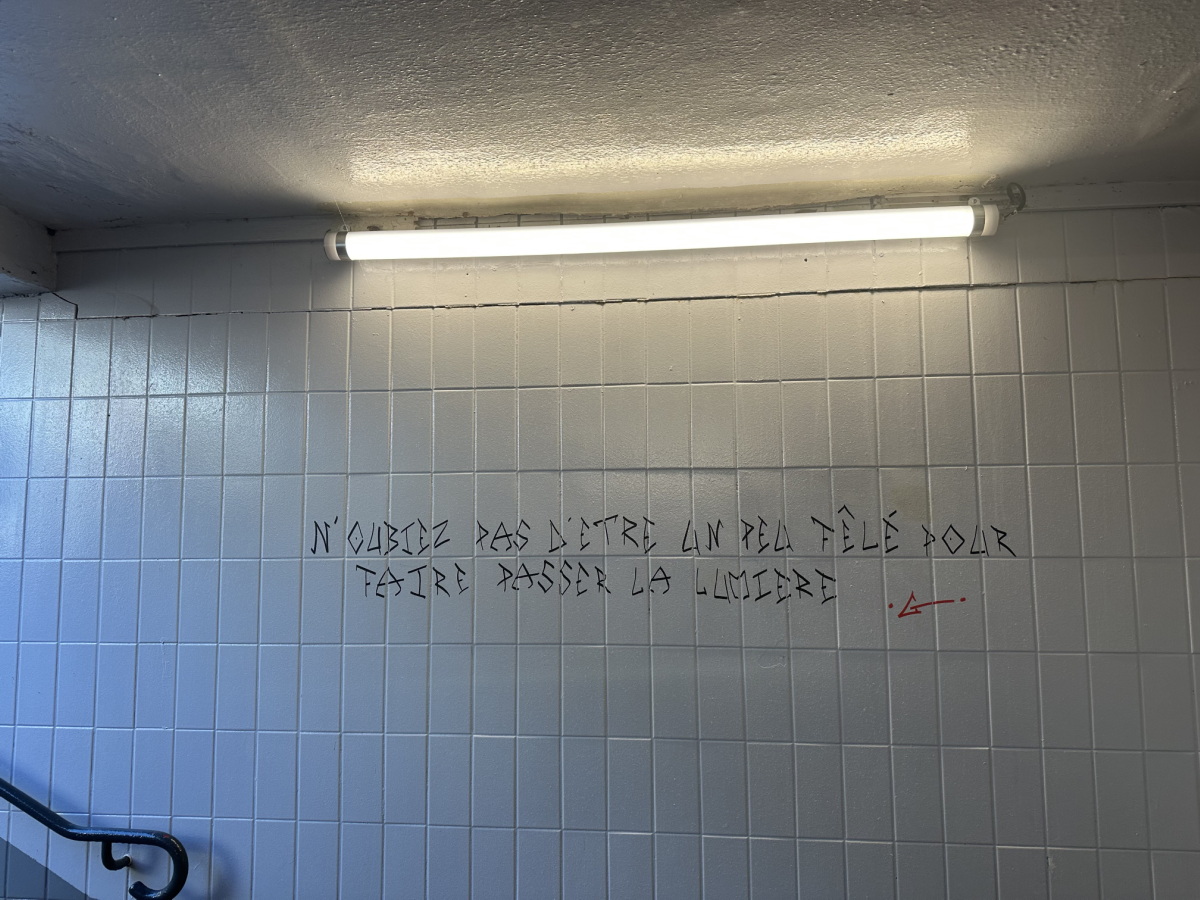 N'OUBIEZ PAS D'ETRE UN PEU FÊLÉ POUR
FAIRE PASSER LA LUMIERE